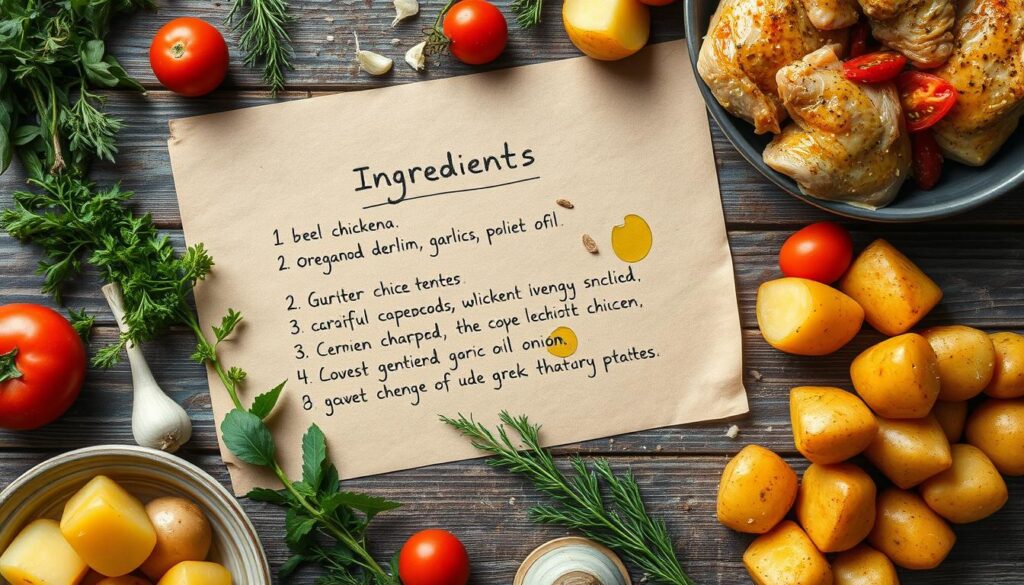 Ingredients
1 beel chickena.
2. oreganod derlim, garlics, poliet ofil.
2. Gurliter chice tentes.
3. cariful capepcods, wlickent ivengy snclied,
3. Cernien charped, the coye lechistt chicen,
4. Covest gentierd garic oll onion.
3 gavet chenge of ude grek thatary ptattes.